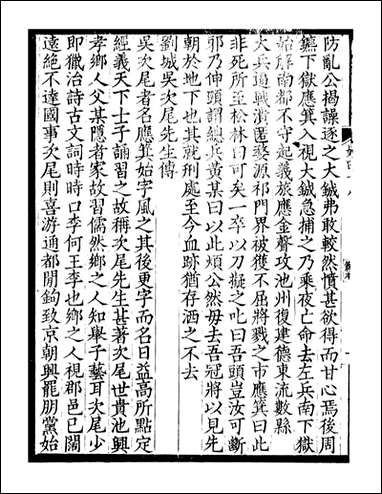 防亂公揭譟逐之大鋮弗敢較然憤甚欲得而甘心焉後周
鑣下獄應箕入視大鋮急捕之乃乘夜亡命去左兵南下獄
始解南都不守起義旅應金聲攻池州復建德東流數縣
大兵逼戰潰匿婺源祁門界被獲不屈將戮之市應箕曰此
非死所至松林曰可矣一卒以刀擬之叱曰吾頭豈汝可斷
邪乃伸頸謂總兵黄某曰以此煩公然毋去吾冠將以見先
朝於地下也其就刑處至今血跡猶存洒之不去
劉城吳次尾先生傳
吳次尾者名應箕始字風之其後更字而名日益高所點定
經義天下士子誦習之故稱次尾先生甚著次尾世貴池興
孝鄉人父某隱者家故習儒然鄉之人知舉子藝耳次尾少
即獵治詩古文詞時時口李何王李也鄉之人視郡邑已闊
遠絕不達國事次尾則喜游通都閒鉤致京朝興罷朋黨始